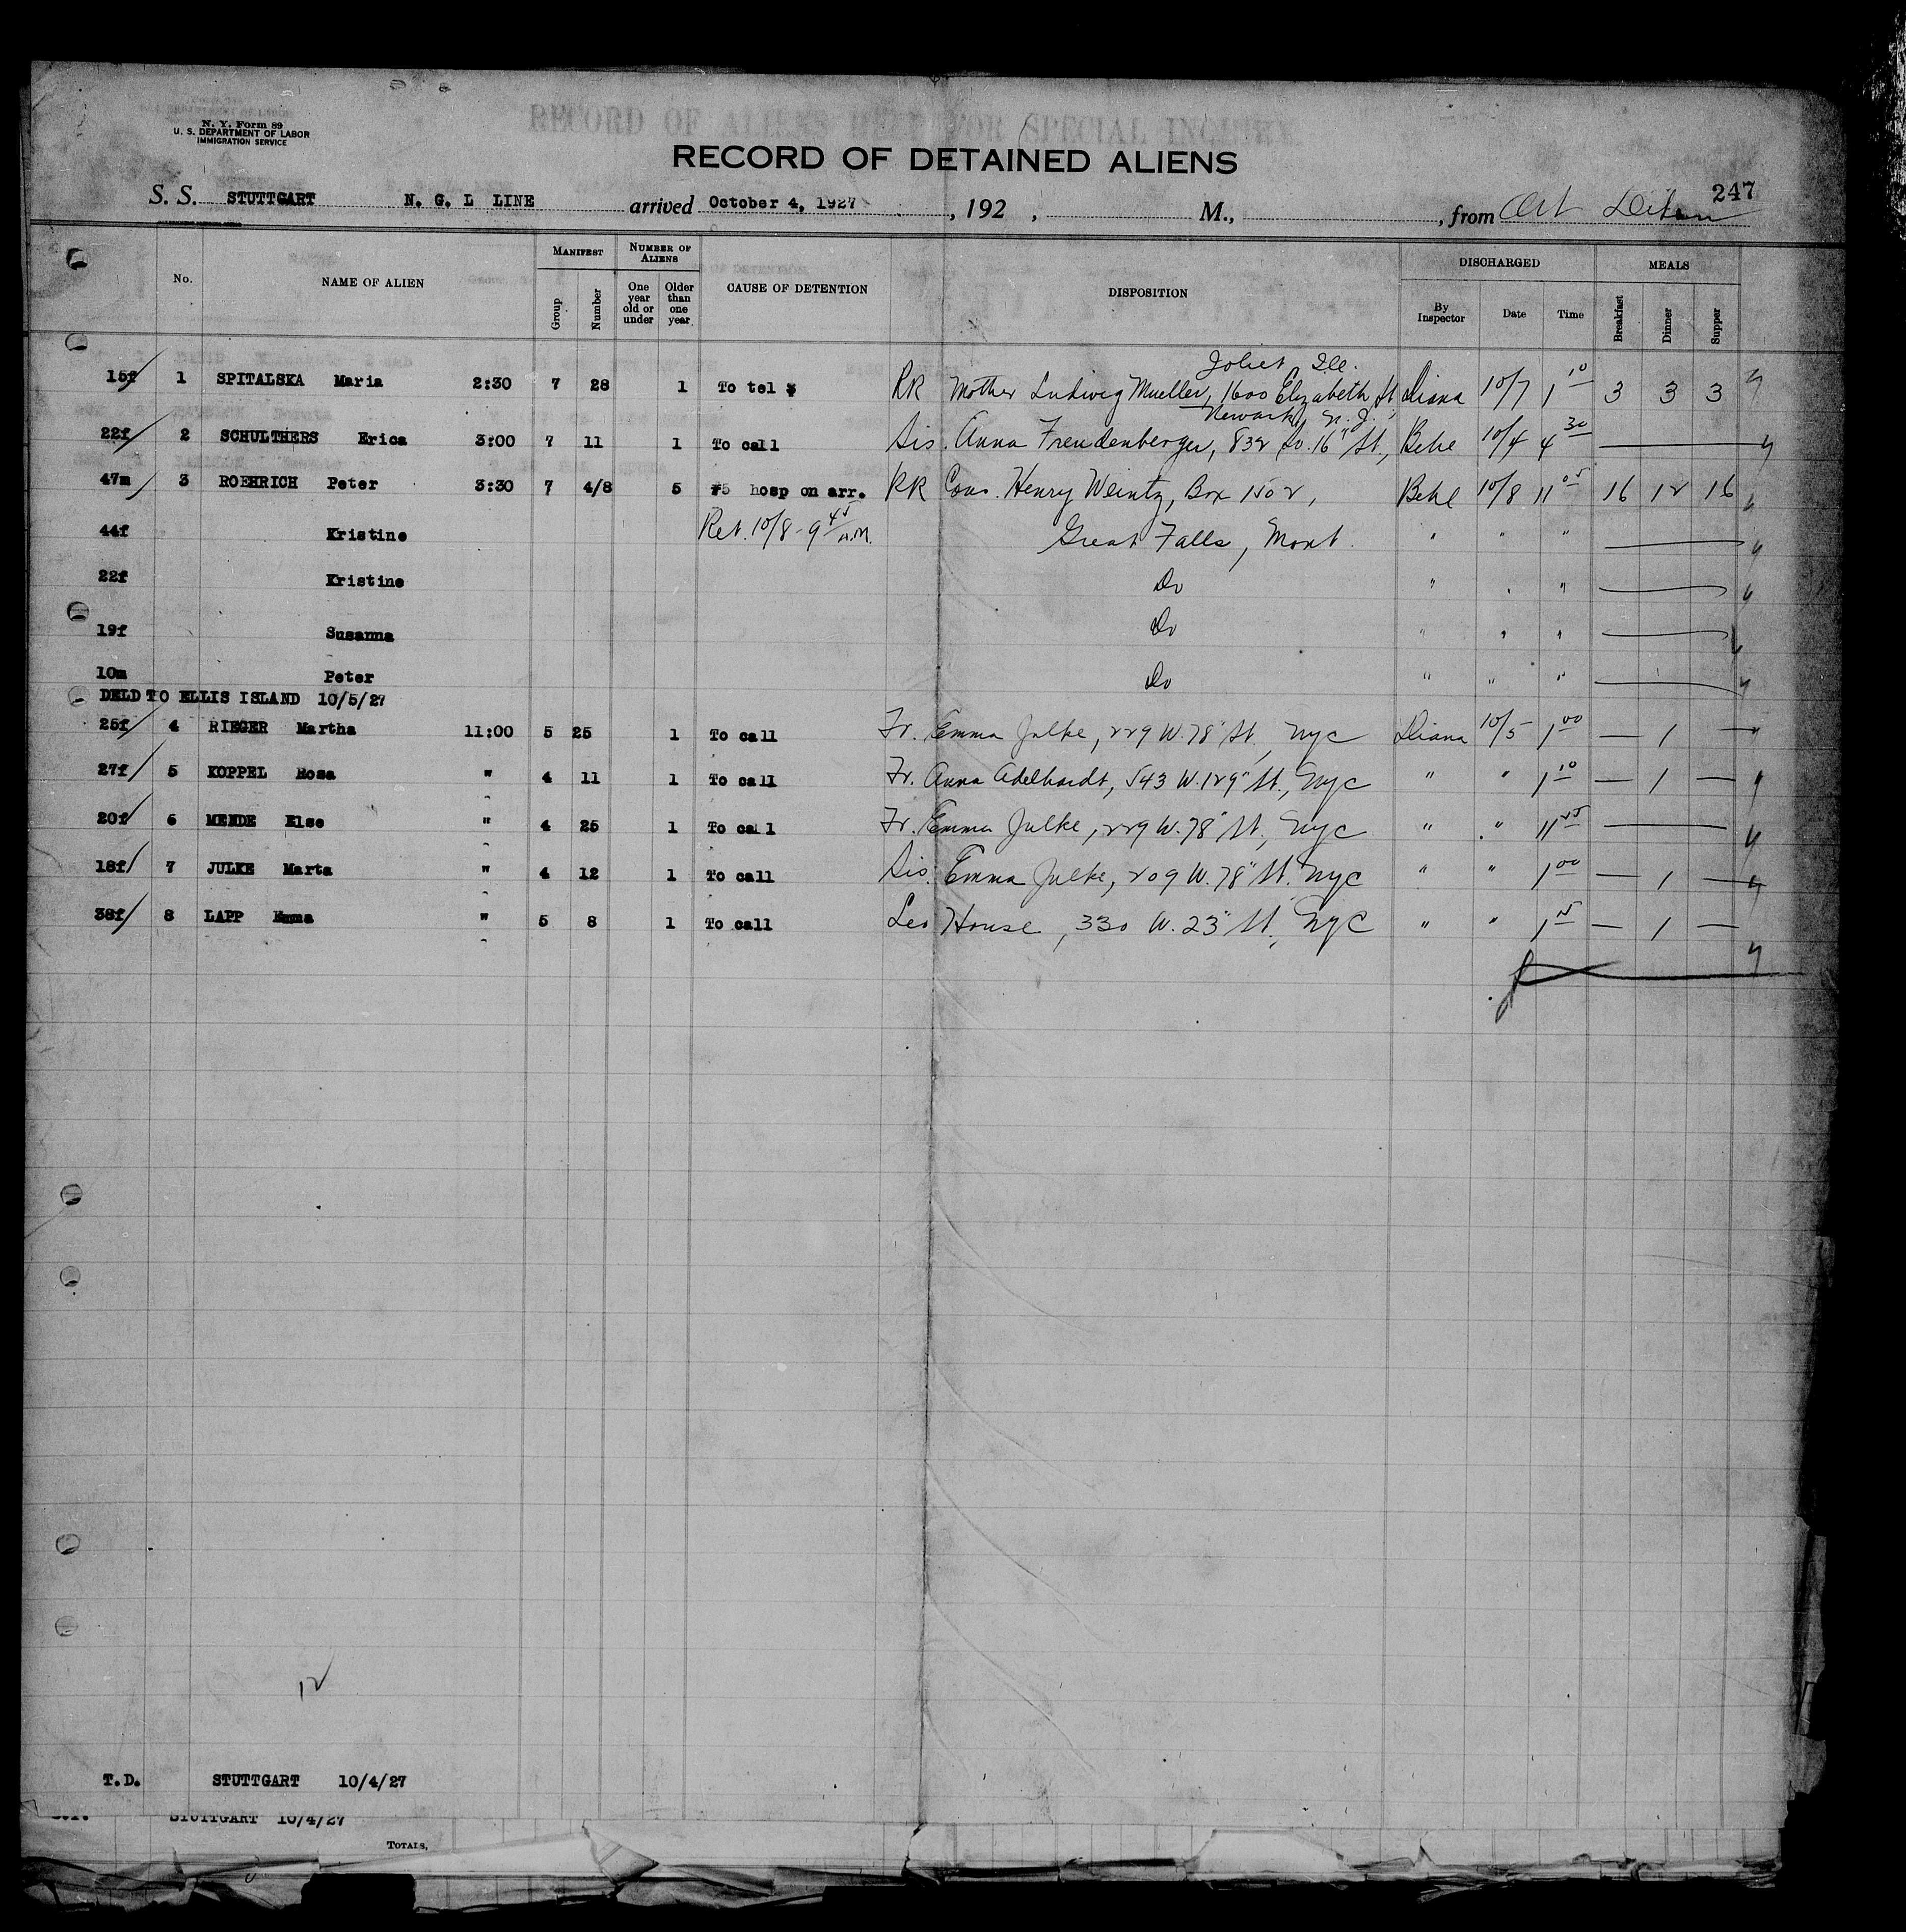 N. Y. Form 89
U. S. DEPARTMENT OF LABOR
IMMIGRATION SERVICE
RECORD OF ALIENS HELD FOR SPECIAL INQUIRY
RECORD OF DETAINED ALIENS
247
S. S. STUTTGART N. G. L LINE arrived October 4, 1927, 192 , M., , from
No. NAME OF ALIEN MANIFEST Group Number NUMBER OF ALIENS One year old or under Older than one year CAUSE OF DETENTION DISPOSITION DISCHARGED By Inspector Date Time MEALS Breakfast Dinner Supper
Joliet, Ill.
15f 1 SPITALSKA Maria 2:30 7 28 1 To tel $ RR Mother Ludwig Mueller, 1600 Elizabeth St, Diana 10/7 1 10 3 3 3
Newark, N. J.
22f 2 SCHULTHERS Erica 3:00 7 11 1 To call Sis. Anna Freudenberger, 832 So. 16" St., Behe 10/4 4 30
47m 3 ROEHRICH Peter 3:30 7 4/8 5 hosp on arr. RR Cous. Henry Weintz, Box 1502, Behe 10/8 11 05 16 12 16
44f Kristine Ret. 10/8 - 9 45 A.M. Great Falls, Mont. " " "
22f Kristine Do " " "
19f Susanna Do " " "
10m Peter Do " " "
DELD TO ELLIS ISLAND 10/5/27
25f 4 RIEGER Martha 11:00 5 25 1 To call Fr. Emma Julke, 229 W. 78" St., NYC Diana 10/5 1 00 — 1 —
27f 5 KOPPEL Rosa " 4 11 1 To call Fr. Anna Adelhardt, 543 W. 129" St., NYC " " 1 10 — 1 —
20f 6 MENDE Else " 4 25 1 To call Fr. Emma Julke, 229 W. 78" St., NYC " " 11 25
18f 7 JULKE Marta " 4 12 1 To call Sis. Emma Julke, 209 W. 78" St. NYC " " 1 00 — 1 —
38f 8 LAPP Emma " 5 8 1 To call Leo House, 330 W. 23" St., NYC " " 1 — 1 —
12
T.D. STUTTGART 10/4/27
STUTTGART 10/4/27
TOTALS,